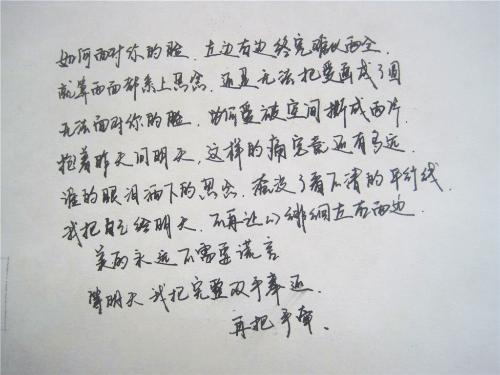 如何面对你的脸．左边右边终究难以两全．
就算两面都系上思念．还是无法把爱画成了圆
无法面对你的脸．如何爱被空间撕成两片．
抱着昨天问明天．这样的痛究竟还有多远．
谁的眼泪洒下的思念．衣 了看不清的平行线．
我把自己给明天．不再让心排徊左右两边．
美丽永远不需要谎言
等明天我把完整双手奉还．
再把手牵．